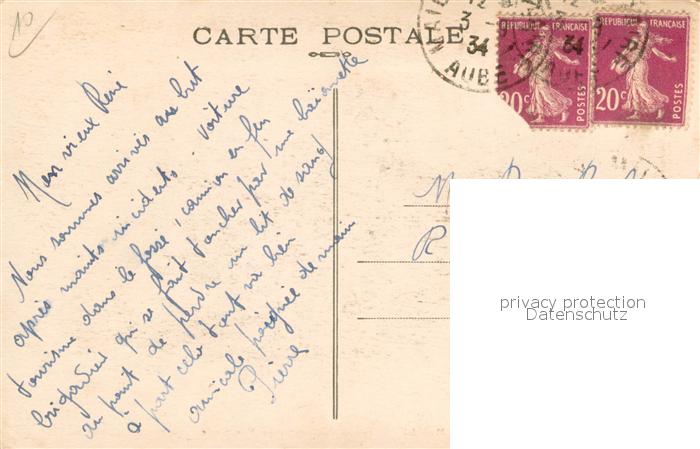 CARTE POSTALE
12
3 -
34
AUBE
RÉPUBLIQUE FRANÇAISE
20c
POSTES
RÉPUBLIQUE FRANÇAISE
20c
POSTES
Mon vieux René
Nous sommes arrivés au but
après maints incidents. voiture
tourisme dans le fossé, camion en feu
brigadier qui se fait toucher par une baïonnette
au point de perdre un lit de sang
à part cela tout va bien
amicale poignée de main
Pierre
M
R
privacy protection
Datenschutz